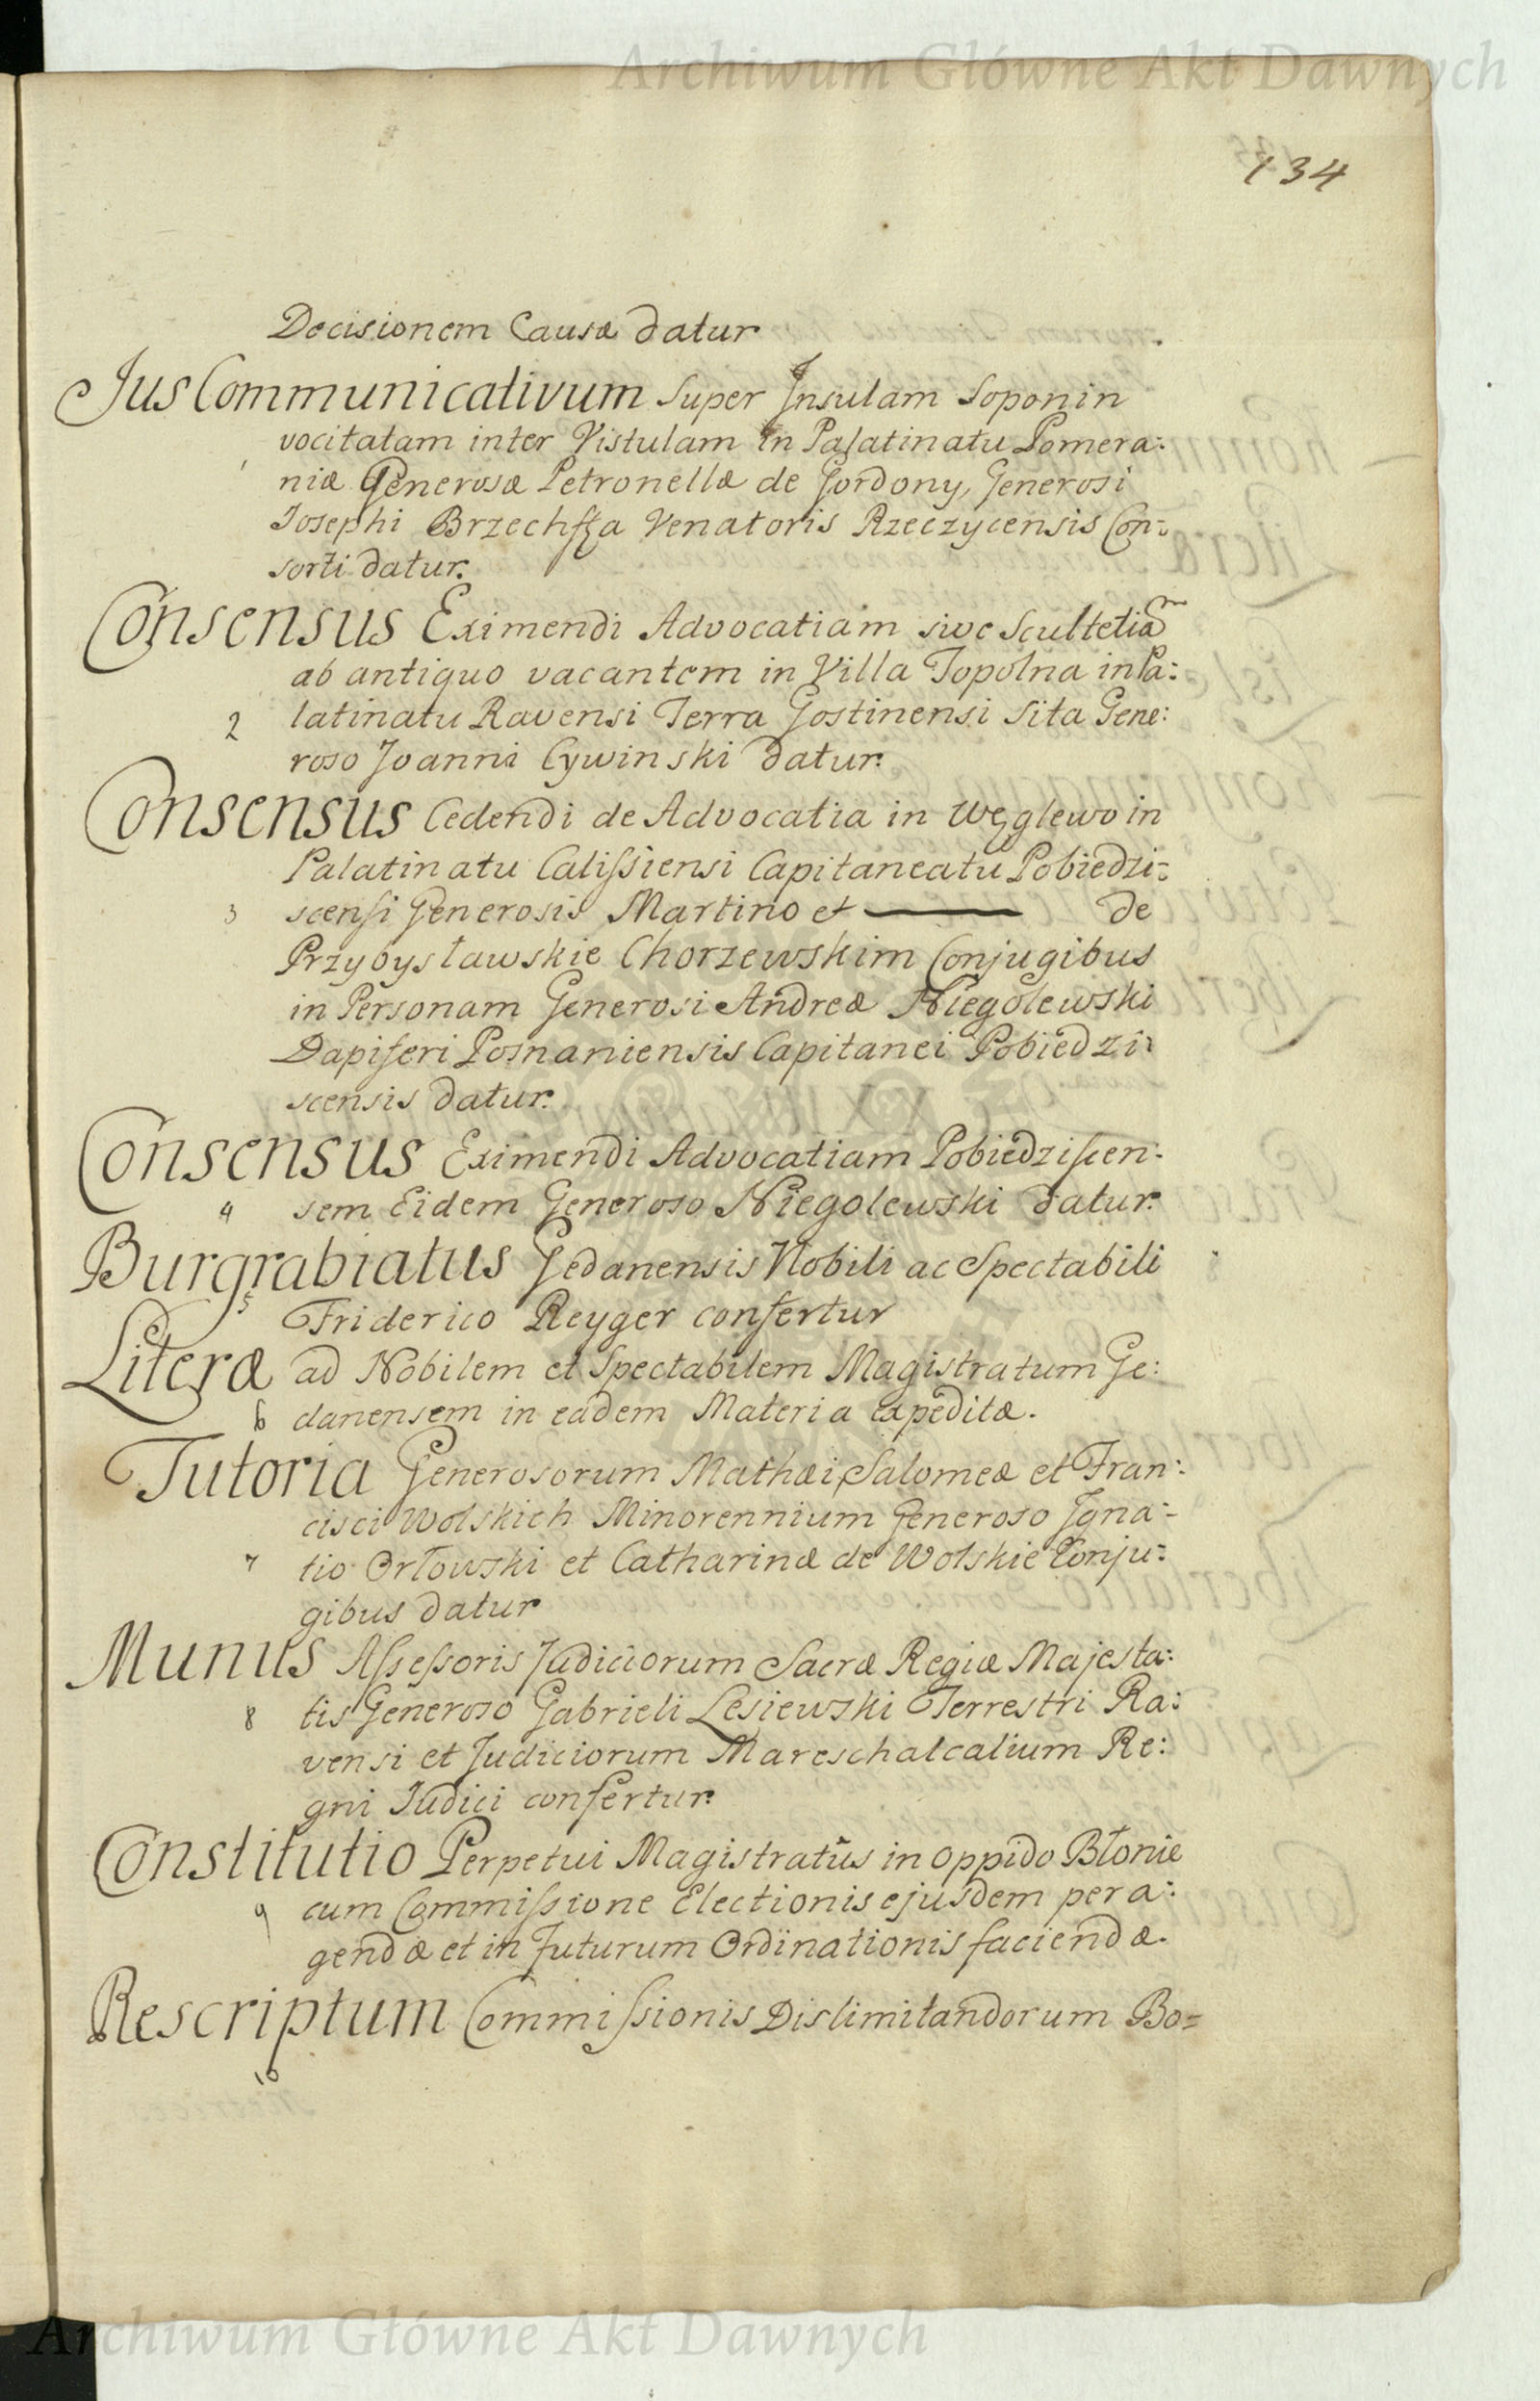 Archiwum Główne Akt Dawnych
134
Decisionem Causæ datur
Jus Communicativum super Insulam Soponin
vocitatam inter Vistulam in Palatinatu Pomera:
1
niæ Generosæ Petronellæ de Gordony, Generosi
Josephi Brzechffa Venatoris Rzeczycensis Con:
sorti datur.
Consensus Eximendi Advocatiam sive Scultetiam
ab antiquo vacantem in Villa Topolna in Pa:
2 latinatu Ravensi Terra Gostinensi sita Gene:
roso Joanni Cywinski datur.
Consensus Cedendi de Advocatia in Węglewo in
Palatinatu Calissiensi Capitaneatu Pobiedzi:
3 scensi Generosis Martino et ——— de
Przybysławskie Chorzewskim Conjugibus
in Personam Generosi Andreæ Niegolewski
Dapiferi Posnaniensis Capitanei Pobiedzi:
scensis datur.
Consensus Eximendi Advocatiam Pobiedziscen:
4 sem Eidem Generoso Niegolewski datur.
Burgrabiatus Gedanensis Nobili ac Spectabili
5 Friderico Reyger confertur
Literæ ad Nobilem et Spectabilem Magistratum Ge:
6 danensem in eadem Materia expeditæ.
Tutoria Generosorum Mathæi, Salomeæ et Fran:
cisci Wolskich Minorennium Generoso Igna:
7 tio Orłowski et Catharinæ de Wolskie Conju:
gibus datur
Munus Assessoris Judiciorum Sacræ Regiæ Majesta:
8 tis Generoso Gabrieli Lesiewski Terrestri Ra:
vensi et Judiciorum Mareschalcalium Re:
gni Judici confertur.
Constitutio Perpetui Magistratûs in oppido Błonie
9 cum Commissione Electionis ejusdem pera:
gendæ et in futurum Ordinationis faciendæ.
Rescriptum Commissionis Dislimitandorum Bo=
10
Archiwum Główne Akt Dawnych